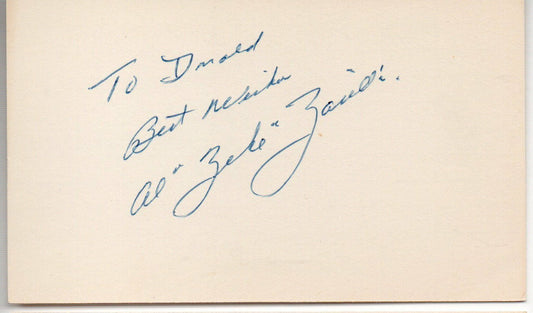 To Donald
Best Wishes
Al "Zeke" Zarilla.